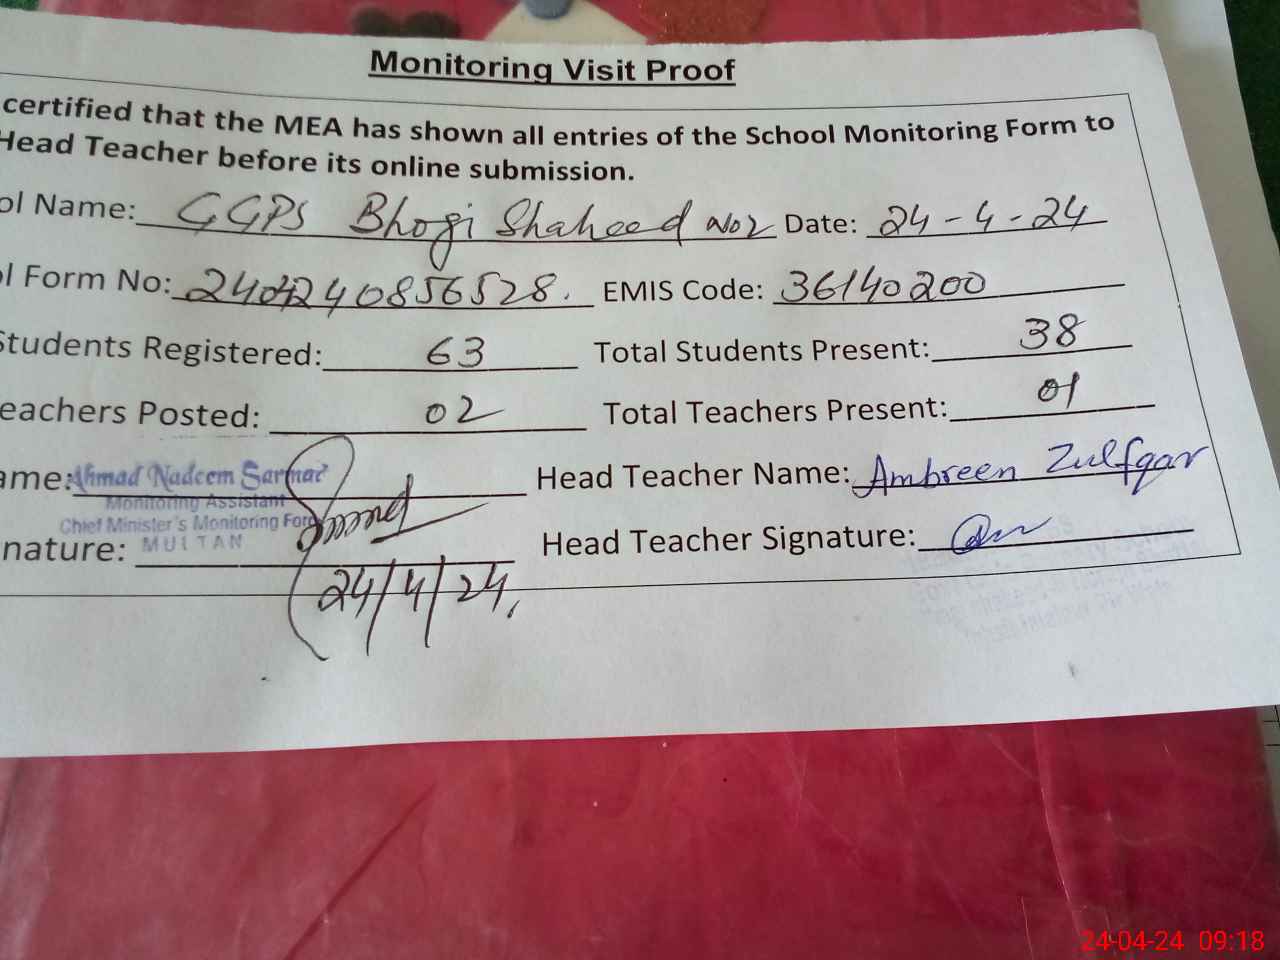 Monitoring Visit Proof
certified that the MEA has shown all entries of the School Monitoring Form to
Head Teacher before its online submission.
ol Name: GGPS Bhogi Shaheed No2 Date: 24-4-24
ol Form No: 2404240856528. EMIS Code: 36140200
Students Registered: 63 Total Students Present: 38
eachers Posted: 02 Total Teachers Present: 01
ame: Ahmad Nadeem Sarmad Head Teacher Name: Ambreen Zulfqar
Monitoring Assistant
Chief Minister's Monitoring Forc
nature: MULTAN Head Teacher Signature:
24/4/24.
24-04-24 09:18